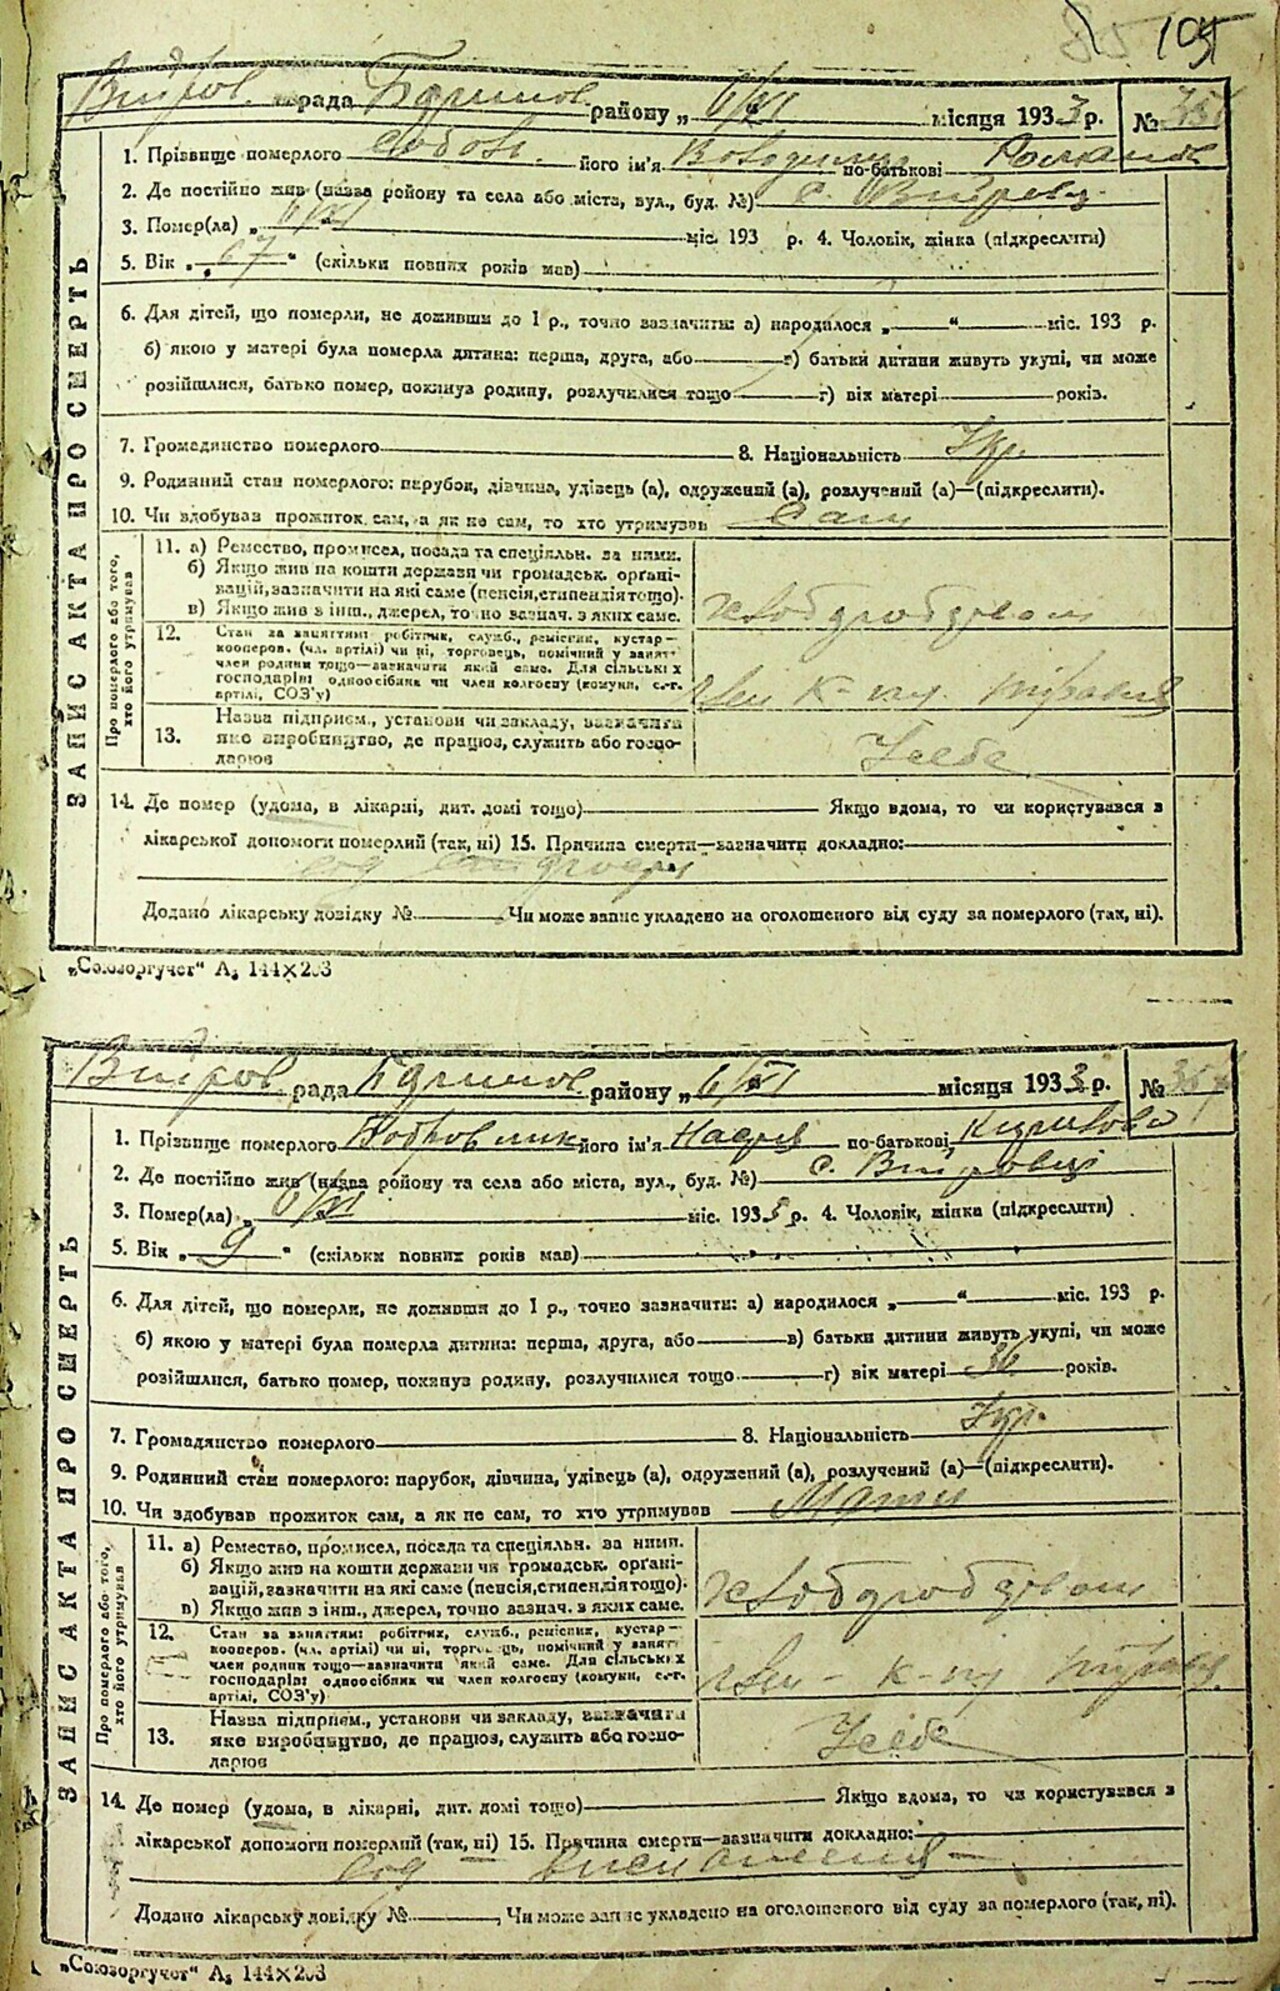 195
рада району „ 6/VI місяця 1933 р. №
1. Прізвище померлого його ім'я Володимир по-батькові
2. Де постійно жив (назва району та села або міста, вул., буд. №) с.
3. Помер(ла) „ 6/VI міс. 193 р. 4. Чоловік, жінка (підкреслити)
5. Вік „ 67 “ (скільки повних років мав)
6. Для дітей, що померли, не доживши до 1 р., точно зазначити: а) народилося „ “ міс. 193 р.
б) якою у матері була померла дитина: перша, друга, або в) батьки дитини живуть укупі, чи може
розійшлися, батько помер, покинув родину, розлучилися тощо г) вік матері років.
7. Громадянство померлого 8. Національність Укр.
9. Родинний стан померлого: парубок, дівчина, удівець (а), одружений (а), розлучений (а)—(підкреслити).
10. Чи здобував прожиток сам, а як не сам, то хто утримував Сам
ЗАПИС АКТА ПРО СМЕРТЬ
Про померлого або того, хто його утримував
11. а) Ремество, промисел, посада та спеціяльн. за ними.
б) Якщо жив на кошти держави чи громадськ. орґані-
зацій, зазначити на які саме (пенсія, стипендія тощо).
в) Якщо жив з інш., джерел, точно зазнач. з яких саме.
хлібодробдством
12. Стан за заняттям: робітник, служб., ремісник, кустар—
кооперов. (чл. артілі) чи ні, торговець, помічний у занятт
член родини тощо—зазначити який саме. Для сільськіх
господарів: одноосібник чи член колгоспу (комуни, с.-г.
артілі, СОЗ'у)
член к-пу
13. Назва підприєм., установи чи закладу, зазначити
яке виробництво, де працює, служить або госпо-
дарює
У себе
14. Де помер (удома, в лікарні, дит. домі тощо) Якщо вдома, то чи користувався з
лікарської допомоги померлий (так, ні) 15. Причина смерти—зазначити докладно:
од
Додано лікарську довідку № , Чи може запис укладено на оголошеного від суду за померлого (так, ні).
„Союзоргучет“ А₅ 144×203
рада району „ 6/VI місяця 1933 р. №
1. Прізвище померлого Бобровник його ім'я Надія по-батькові Кирилова
2. Де постійно жив (назва району та села або міста, вул., буд. №) с.
3. Помер(ла) „ 6/VI міс. 1933 р. 4. Чоловік, жінка (підкреслити)
5. Вік „ 9 “ (скільки повних років мав)
6. Для дітей, що померли, не доживши до 1 р., точно зазначити: а) народилося „ “ міс. 193 р.
б) якою у матері була померла дитина: перша, друга, або в) батьки дитини живуть укупі, чи може
розійшлися, батько помер, покинув родину, розлучилися тощо г) вік матері 36 років.
7. Громадянство померлого 8. Національність Укр.
9. Родинний стан померлого: парубок, дівчина, удівець (а), одружений (а), розлучений (а)—(підкреслити).
10. Чи здобував прожиток сам, а як не сам, то хто утримував Мати
ЗАПИС АКТА ПРО СМЕРТЬ
Про померлого або того, хто його утримував
11. а) Ремество, промисел, посада та спеціяльн. за ними.
б) Якщо жив на кошти держави чи громадськ. орґані-
зацій, зазначити на які саме (пенсія, стипендія тощо).
в) Якщо жив з інш., джерел, точно зазнач. з яких саме.
хлібодробдством
12. Стан за заняттям: робітник, служб., ремісник, кустар—
кооперов. (чл. артілі) чи ні, торговець, помічний у занятт
член родини тощо—зазначити який саме. Для сільськіх
господарів: одноосібник чи член колгоспу (комуни, с.-г.
артілі, СОЗ'у)
член к-пу
13. Назва підприєм., установи чи закладу, зазначити
яке виробництво, де працює, служить або госпо-
дарює
У себе
14. Де помер (удома, в лікарні, дит. домі тощо) Якщо вдома, то чи користувався з
лікарської допомоги померлий (так, ні) 15. Причина смерти—зазначити докладно:
од — виснаження —
Додано лікарську довідку № , Чи може запис укладено на оголошеного від суду за померлого (так, ні).
„Союзоргучет“ А₅ 144×203